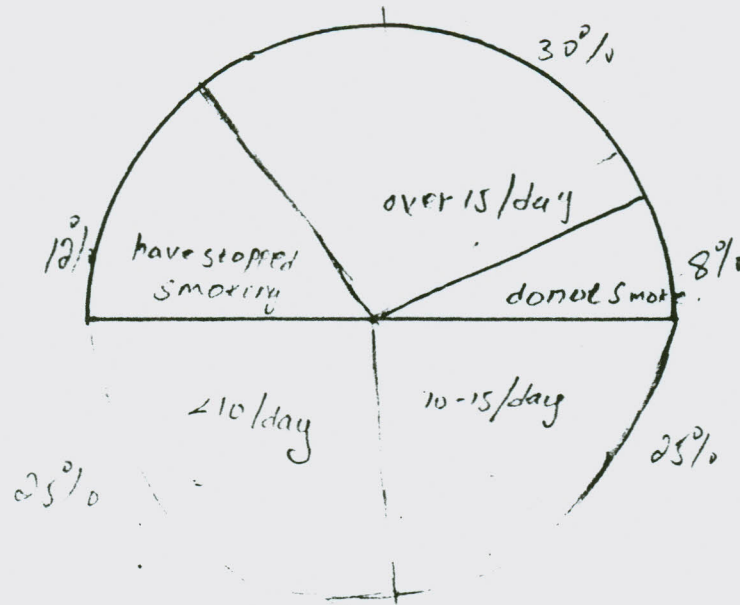 30%
over 15/day
12%
have stopped
smoking
8%
do not smok
<10/day
10-15/day
25%
25%